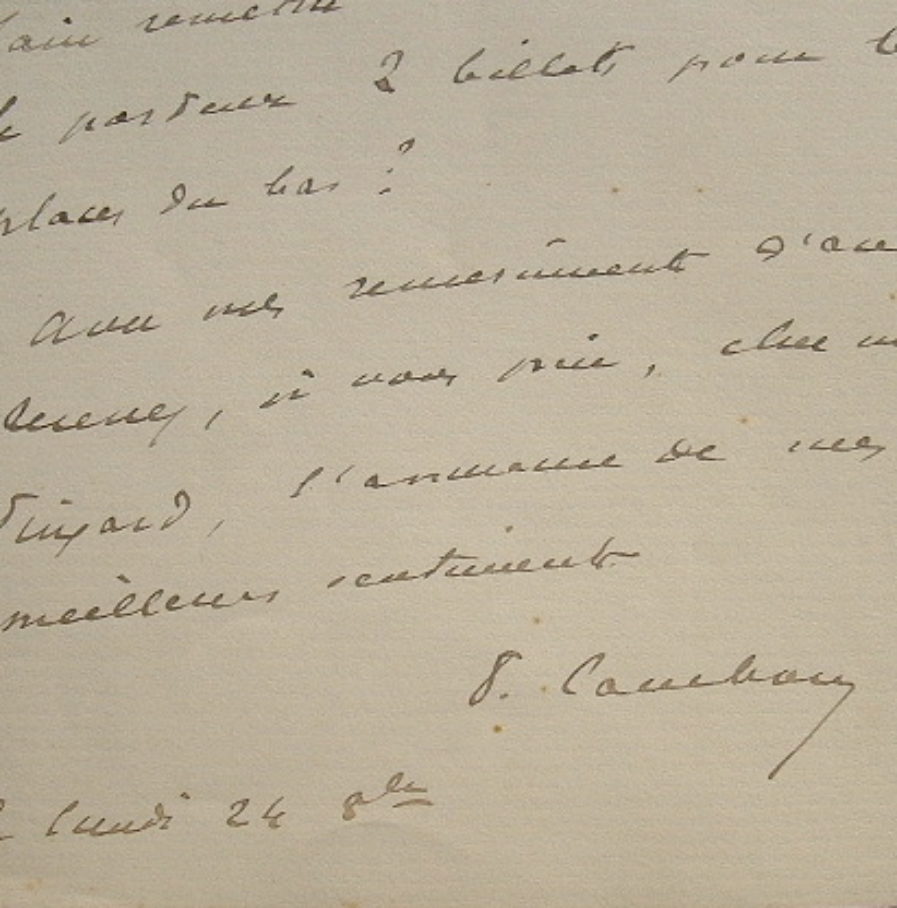 faire remettre
porteur 2 billets pour
places du bas ?
Avec mes remerciements d'avance
, je vous prie, cher
Tinyard, l'assurance de mes
meilleurs sentiments
P. Cambon
lundi 24 8bre